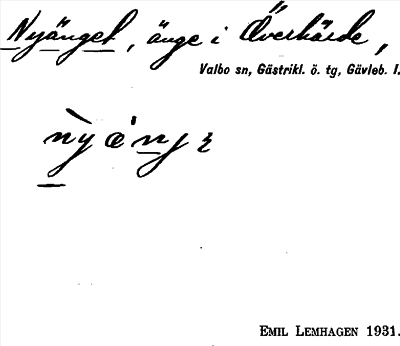 Nyänget, änge i Överhärde,
Valbo sn, Gästrikl. ö. tg, Gävleb. l.
EMIL LEMHAGEN 1931.